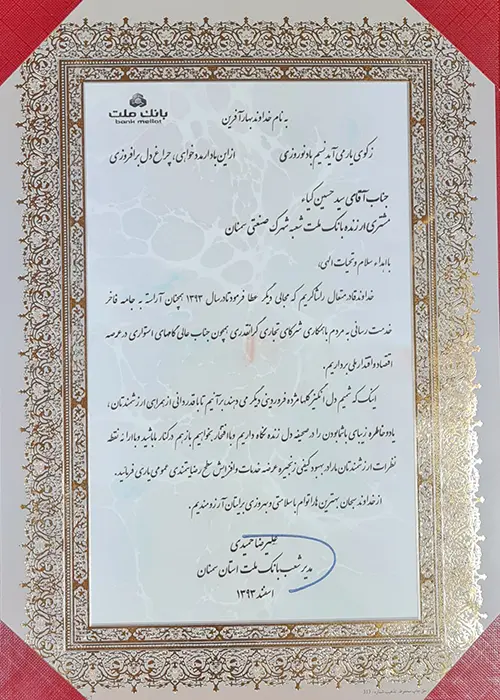 بانک ملت
bank mellat
به نام خداوند بهارآفرین
زکوی یار می آید نسیم باد نوروزی از این باد ار مدد خواهی، چراغ دل برافروزی
جناب آقای سید حسین کیاء
مشتری ارزنده بانک ملت شعبه شهرک صنعتی سمنان
با اهداء سلام و تحیات الهی،
خداوند قادر متعال را شاکریم که مجالی دیگر عطا فرمود تا در سال ۱۳۹۳ همچنان آراسته به جامه فاخر
خدمت رسانی به مردم با همکاری شرکای تجاری گرانقدری همچون جناب عالی گامهای استواری در عرصه
اقتصاد و اقتدار ملی برداریم.
اینک که شمیم دل انگیز گلها مژده فروردینی دیگر می دهند، برآنیم تا با قدردانی از همراهی ارزشمندتان،
یاد و خاطره زیبای با شما بودن را در صحیفه دل زنده نگاه داریم و با افتخار بخواهیم باز هم در کنار ما باشید و با ارائه نقطه
نظرات ارزشمندتان ما را در بهبود کیفی زنجیره عرضه خدمات و افزایش سطح رضایتمندی عمومی یاری فرمائید.
از خداوند سبحان بهترین ها را توام با سلامتی و بهروزی برایتان آرزومندیم.
علیرضا حمیدی
مدیر شعب بانک ملت استان سمنان
اسفند ۱۳۹۳